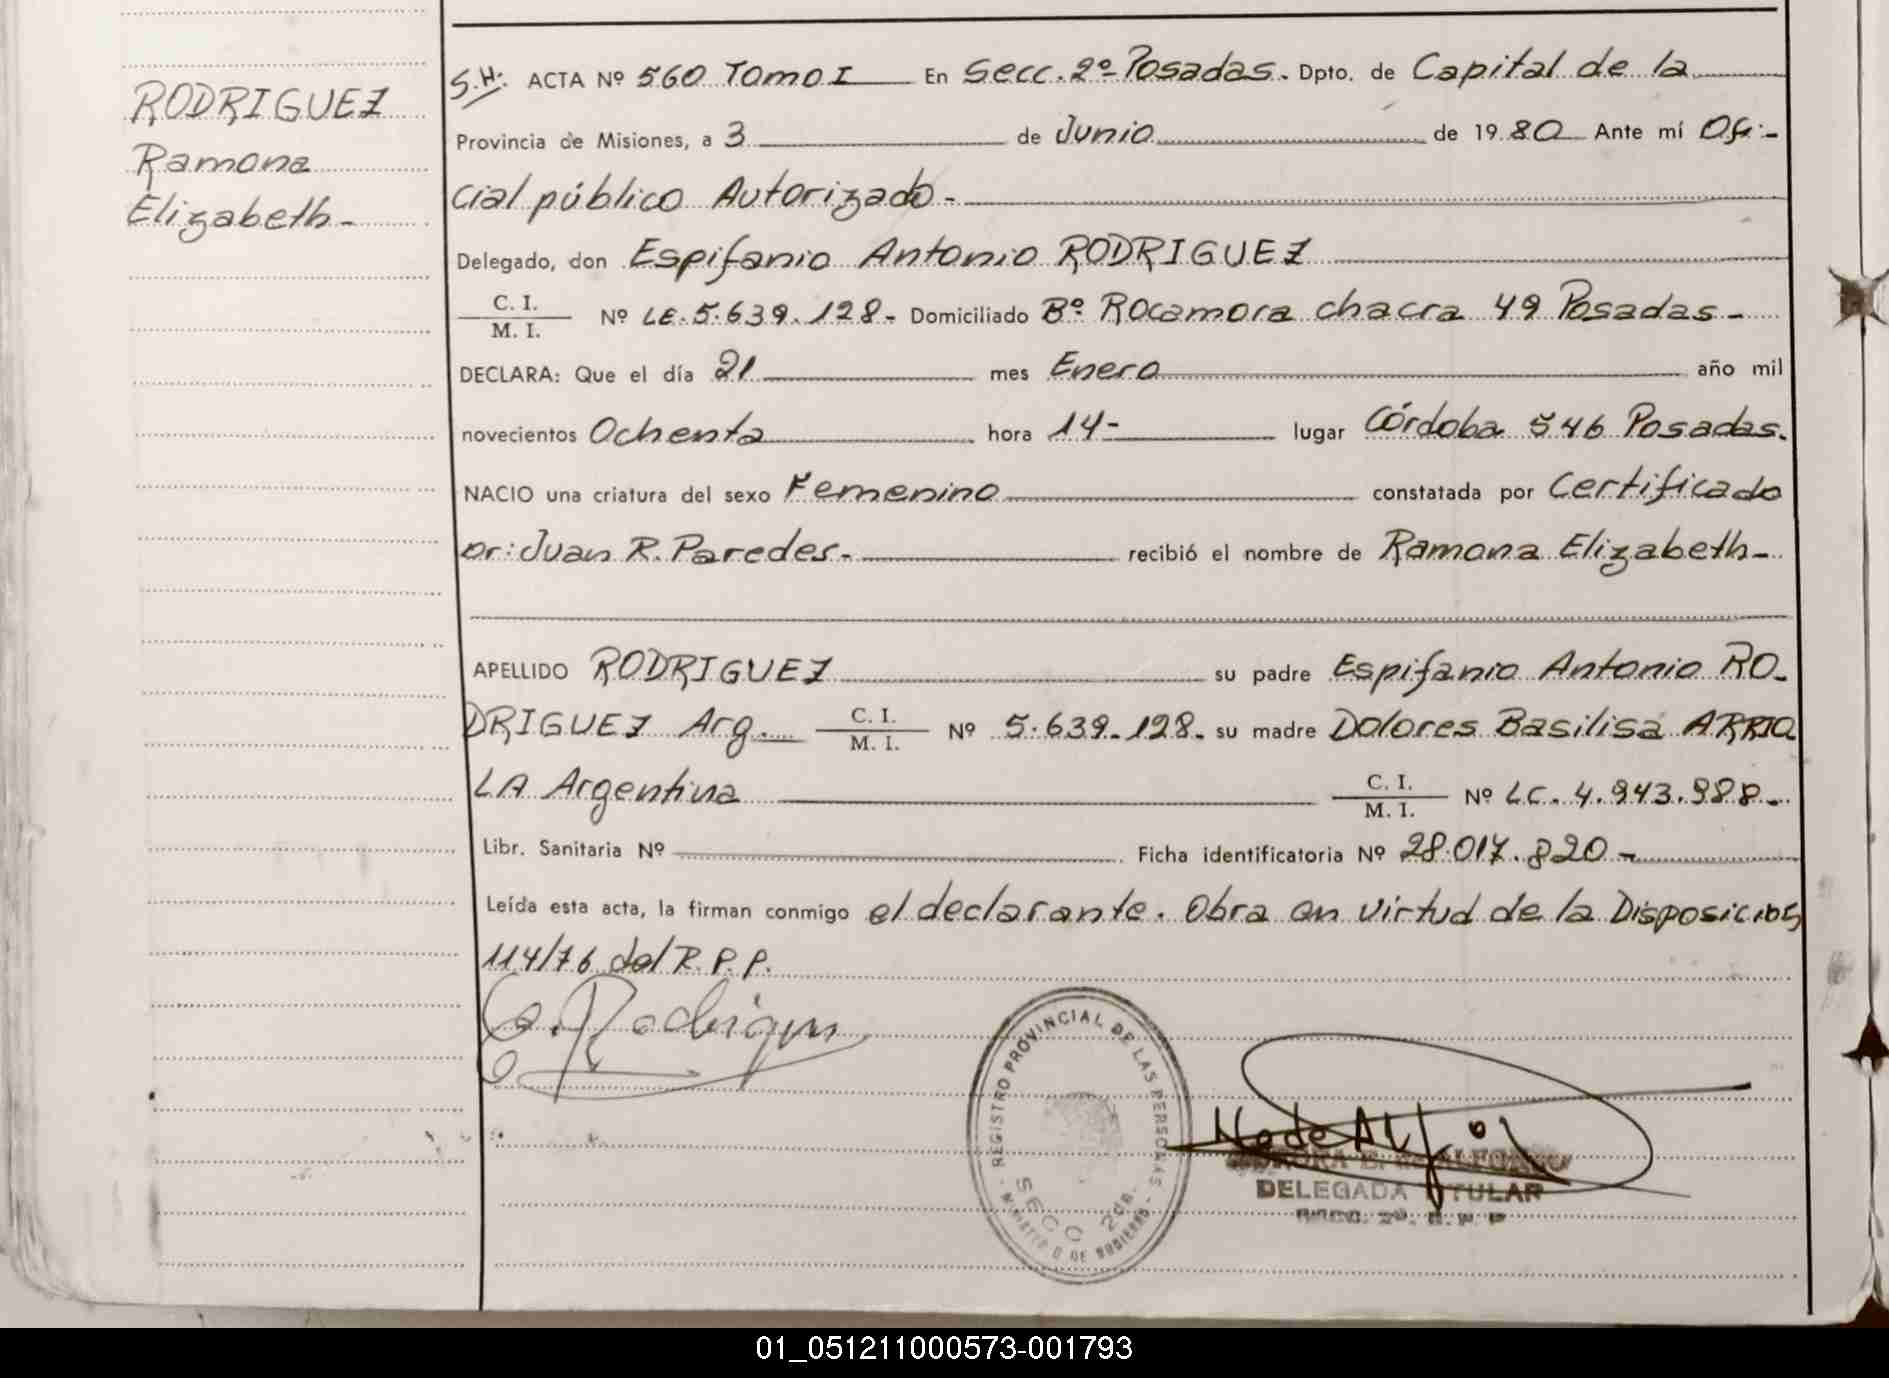 RODRIGUEZ
Ramona
Elizabeth-
S.H: ACTA Nº 560 Tomo I En Secc. 2º Posadas. Dpto. de Capital de la
Provincia de Misiones, a 3 de Junio de 1980 Ante mí Ofi-
cial público Autorizado-
Delegado, don Espifanio Antonio RODRIGUEZ
C. I.
M. I. Nº LE. 5.639.128- Domiciliado Bº Rocamora chacra 49 Posadas-
DECLARA: Que el día 21 mes Enero año mil
novecientos Ochenta hora 14- lugar Córdoba 546 Posadas.
NACIO una criatura del sexo Femenino constatada por Certificado
Dr: Juan R. Paredes.- recibió el nombre de Ramona Elizabeth-
APELLIDO RODRIGUEZ su padre Espifanio Antonio RO-
DRIGUEZ Arg. C. I.
M. I. Nº 5.639.128. su madre Dolores Basilisa ARRIO
LA Argentina C. I.
M. I. Nº LC. 4.943.988-
Libr. Sanitaria Nº Ficha identificatoria Nº 28.017.820-
Leída esta acta, la firman conmigo el declarante. Obra en virtud de la Disposicion
114/76 del R.P.P.
E. Rodriguez
REGISTRO PROVINCIAL DE LAS PERSONAS
SECC 2da.
MINISTERIO DE GOBIERNO
DELEGADA TITULAR
SECC. 2º. R. P. P
01_051211000573-001793